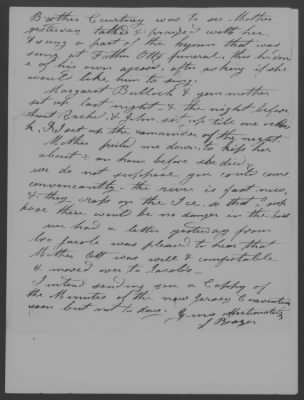 Brother Courtney was to see Mother
yesterday talked & prayed with her
& sung a part of the hymn that was
sung at Father Otts funeral, this he done
of his own accord, after asking if she
would like him to sing.
Margaret Bullock & your mother
set up last night & the night before
Aunt & John set up till one
I set up the remainder of the night.
Mother pulled me down to kiss her
about ½ an hour before she died,
we do not suppose you could come
conveniently - the river is fast now,
& they cross on the Ice, so that I sup
pose there would be no danger in the boat
we had a letter yesterday from
Jacobs was pleased to hear that
Mother Ott was well & comfortable
& moved over to Jacobs -
I intend sending you a Coppy of
the Minutes of the new Jersey Convention
soon but not to day.
Yours Affectionately
J Boozer